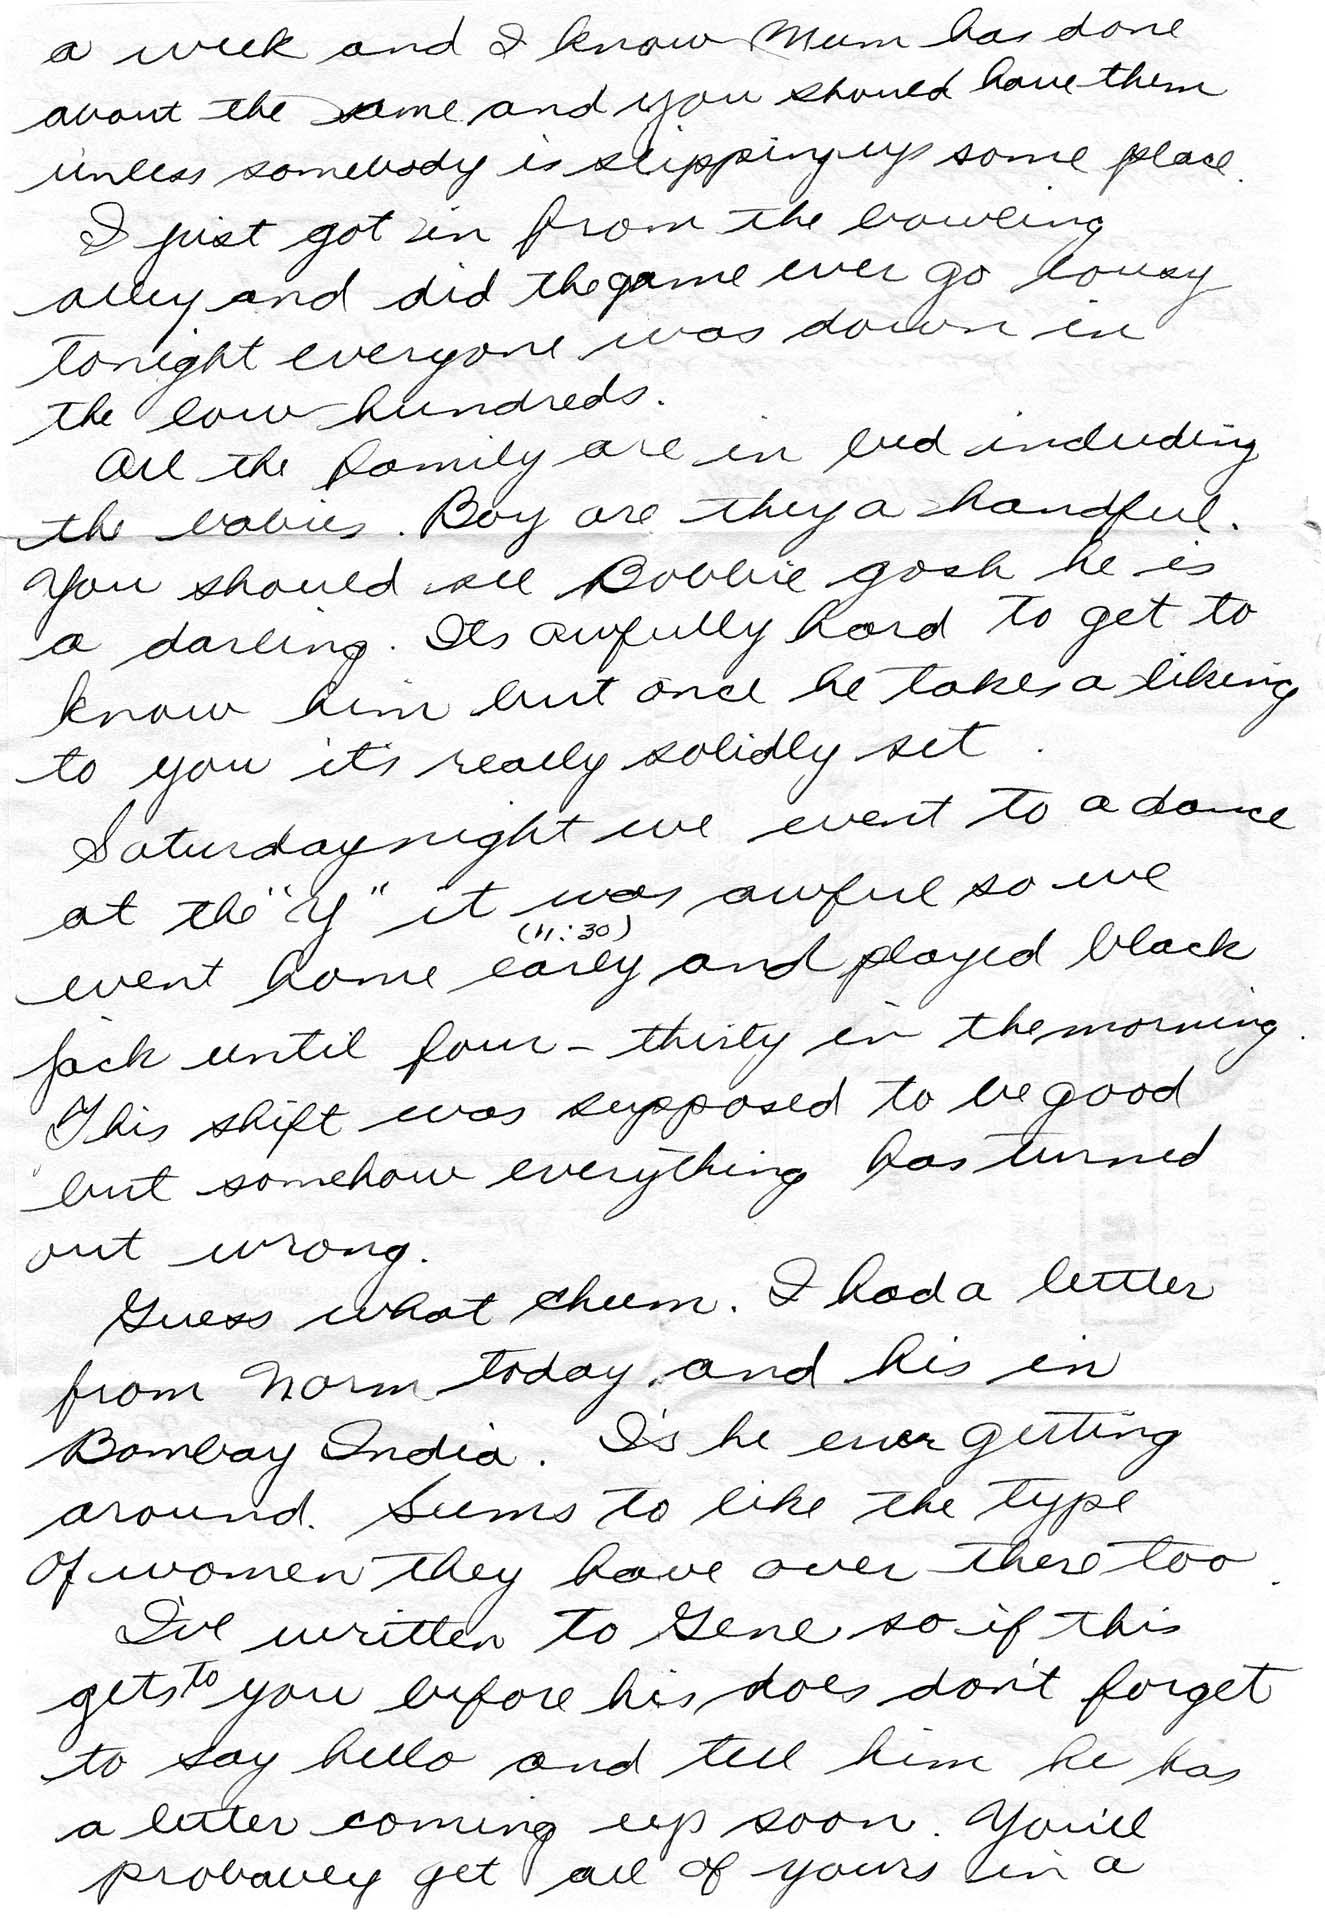 a week and I know Mum has done
about the same and you should have them
unless somebody is slipping up some place.
I just got in from the bowling
alley and did the game ever go lousy
tonight everyone was down in
the low hundreds.
All the family are in bed including
the babies. Boy are they a handful.
You should see Bobbie gosh he is
a darling. Its awfully hard to get to
know him but once he takes a liking
to you it's really solidly set.
Saturday night we went to a dance
at the "Y" it was awful so we
(11:30)
went home early and played black
jack until four-thirty in the morning.
This shift was supposed to be good
but somehow everything has turned
out wrong.
Guess what chum. I had a letter
from Norm today and his in
Bombay India. Is he ever getting
around. Seems to like the type
of women they have over there too.
I've written to Gene so if this
gets to you before his does don't forget
to say hello and tell him he has
a letter coming up soon. You'll
probabley get all of yours in a